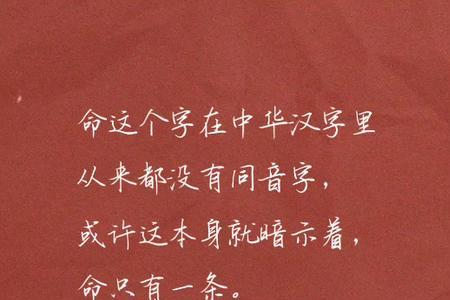 命这个字在中华汉字里
从来都没有同音字，
或许这本身就暗示着，
命只有一条。